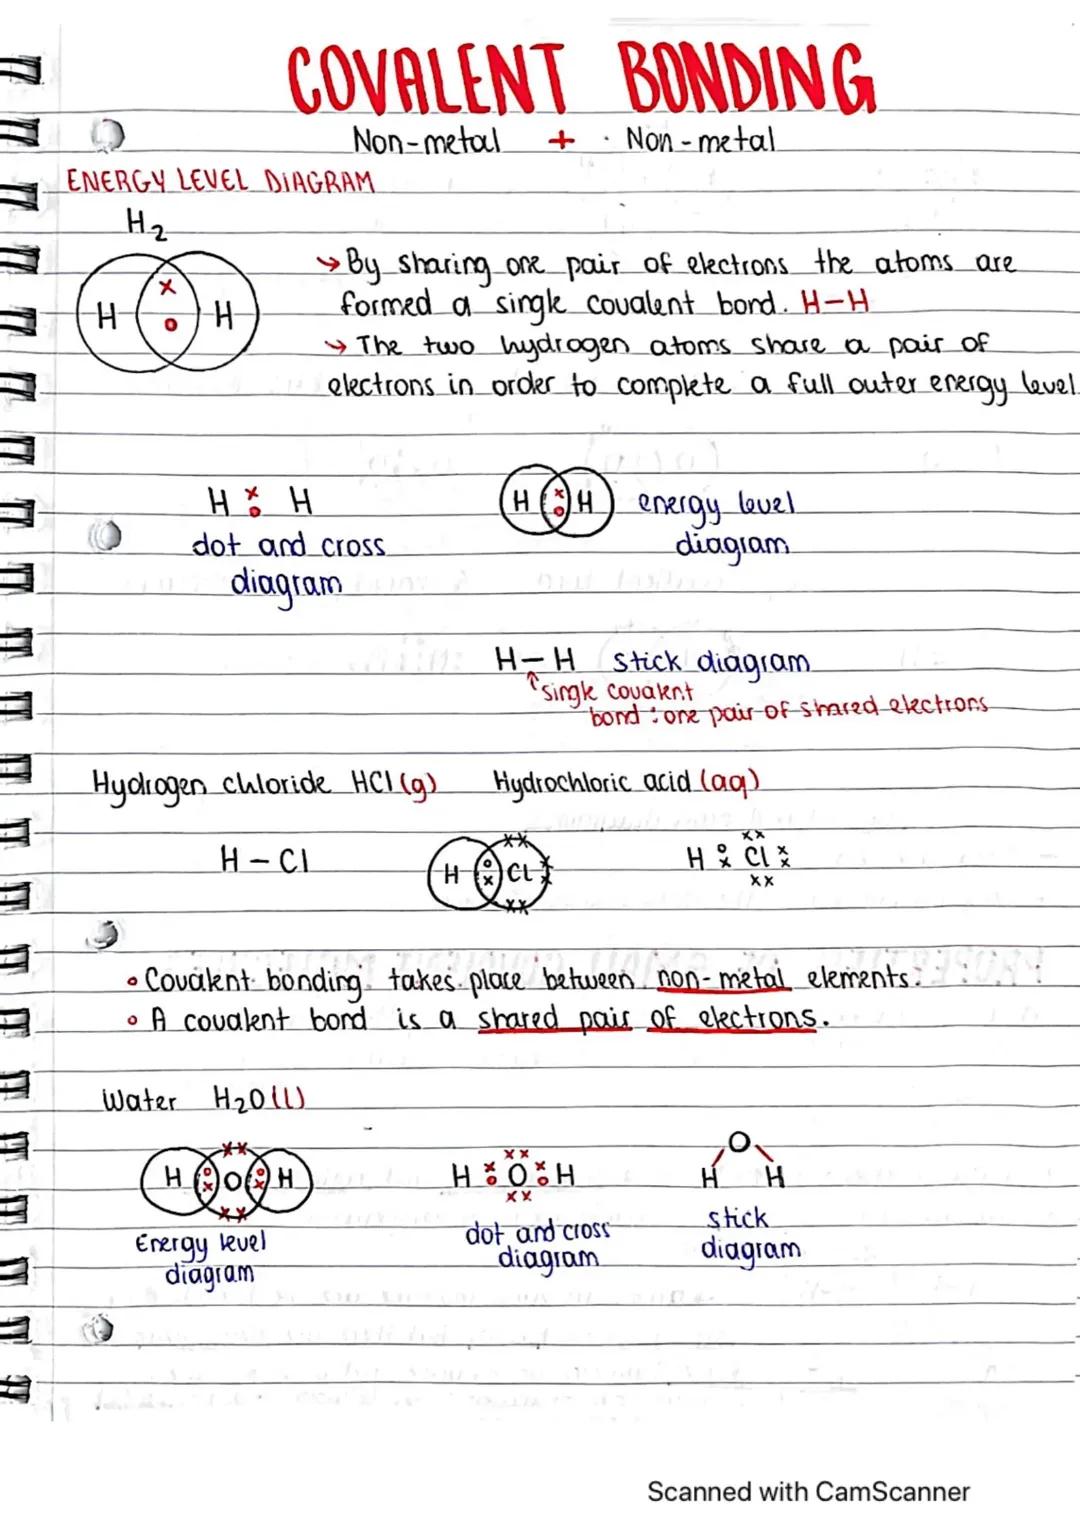 COVALENT BONDING
Non-metal + Non-metal
ENERGY LEVEL DIAGRAM
H2
H x o H
→ By sharing one pair of electrons the atoms are
formed a single covalent bond. H-H
→ The two hydrogen atoms share a pair of
electrons in order to complete a full outer energy level.
H x o H
H x o H energy level
dot and cross
diagram
diagram
H-H stick diagram
↑ single covalent
bond : one pair of shared electrons
Hydrogen chloride HCl (g) Hydrochloric acid (aq)
xx
H - Cl
H o x Cl x x
H o x Cl x x
xx
xx
• Covalent bonding takes place between non-metal elements.
• A covalent bond is a shared pair of electrons.
Water H2O (l)
xx
H o x O o x H
xx
xx
H x o O x o H
xx
O
H H
Energy level
diagram
dot and cross
diagram
stick
diagram
Scanned with CamScanner